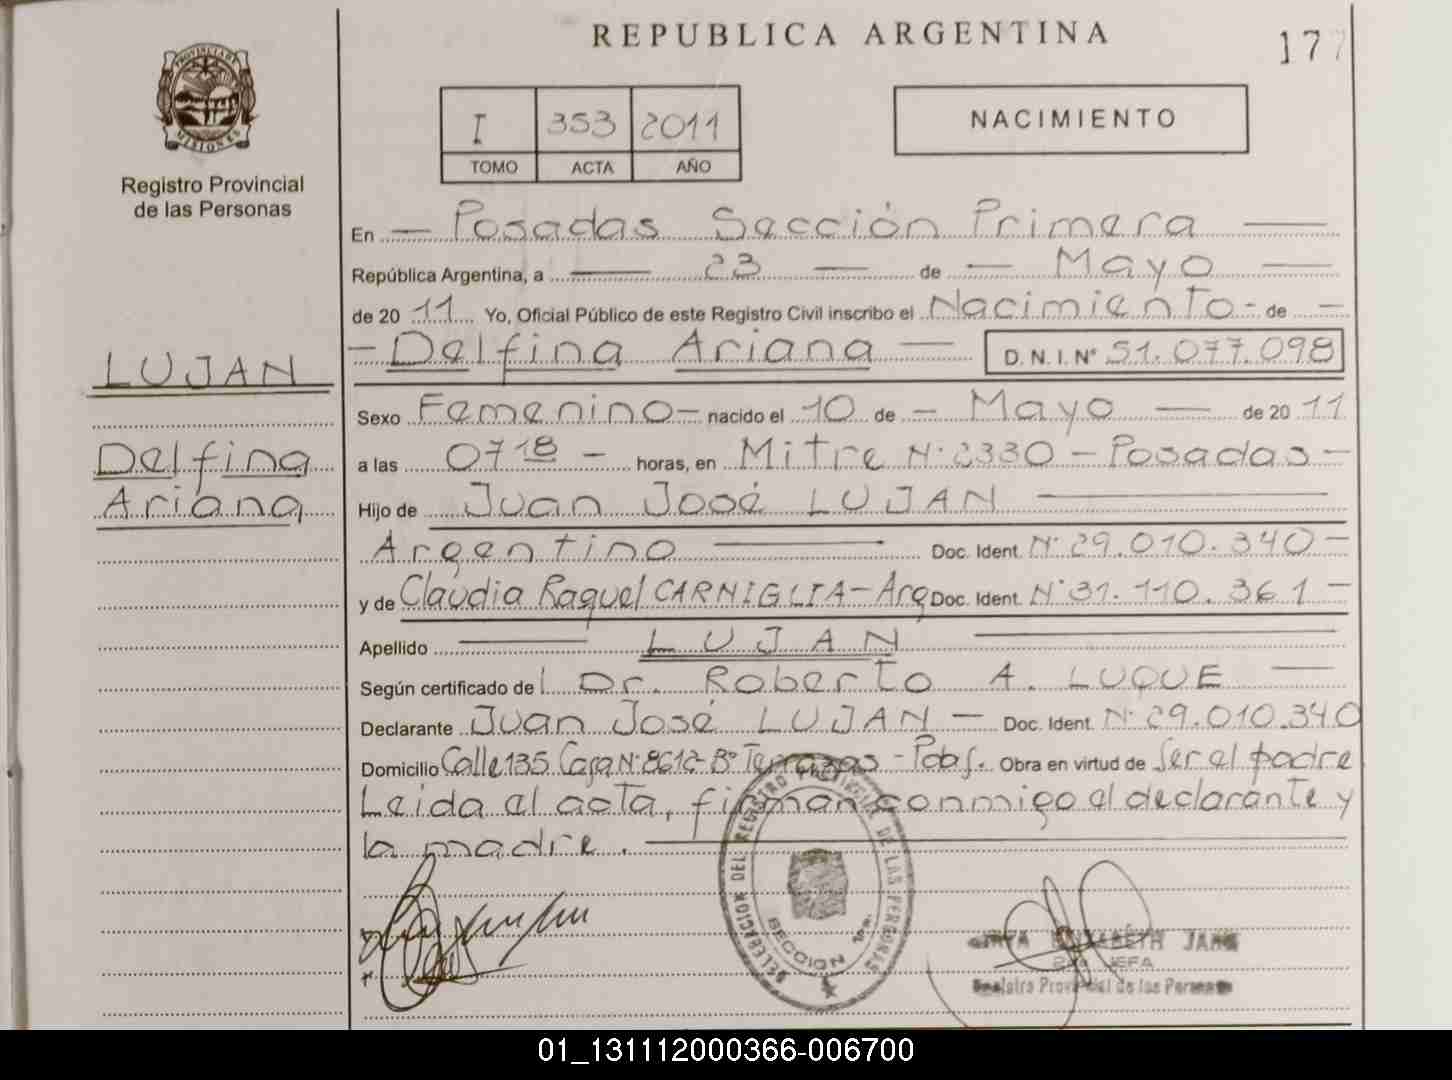 REPUBLICA ARGENTINA
177
PROVINCIA DE MISIONES
Registro Provincial
de las Personas
I 353 2011
TOMO ACTA AÑO
NACIMIENTO
En — Posadas Sección Primera —
República Argentina, a — 23 — de — Mayo —
de 20 11 Yo, Oficial Público de este Registro Civil inscribo el Nacimiento - de —
— Delfina Ariana — D.N.I. Nº 51.077.098
LUJAN
Delfina
Ariana
Sexo Femenino — nacido el 10 de — Mayo — de 20 11
a las 07 18 — horas, en Mitre Nº 2330 — Posadas —
Hijo de Juan José LUJAN —
Argentino — Doc. Ident. Nº 29.010.340 —
y de Claudia Raquel CARNIGLIA — Arg Doc. Ident. Nº 31.110.361 —
Apellido — LUJAN —
Según certificado del Dr. Roberto A. LUQUE —
Declarante Juan José LUJAN — Doc. Ident. Nº 29.010.340
Domicilio Calle 135 Casa Nº 8612 - Bº Terrazas - Pdas. Obra en virtud de Ser el padre
Leida el acta, firman conmigo el declarante y
la madre. —
DEL REGISTRO PROVINCIAL DE LAS PERSONAS
SECCION 1ra.
ELIZABETH
2da JEFA
Registro Provincial de las Personas
01_131112000366-006700